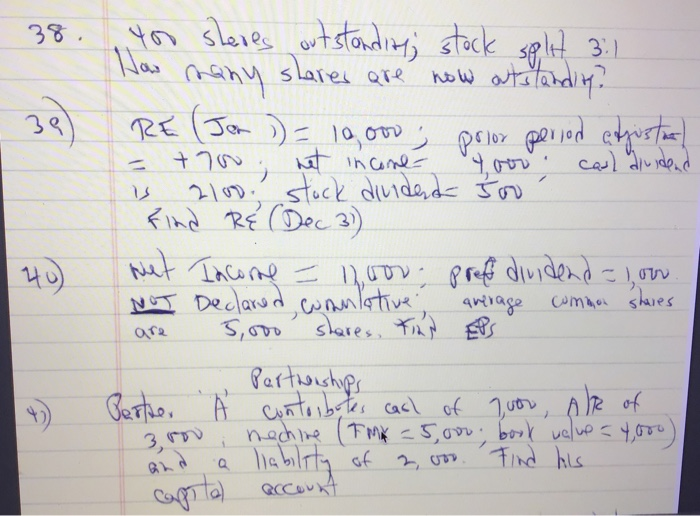 38. 400 shares outstanding; stock split 3:1
How many shares are now outstanding?
39) RE (Jan 1) = 10,000; prior period adjustment
= +700; net income = 4,000; cash dividend
is 2100; stock dividend = 500
Find RE (Dec 31)
40) Net Income = 11,000; pref dividend = 1,000
NOT Declared, cumulative; average common shares
are 5,000 shares. Find EPS
Partnerships
41) Partner "A" contributes cash of 7,000, A/R of
3,000, machine (FMV = 5,000; book value = 4,000)
and a liability of 2,000. Find his
capital account